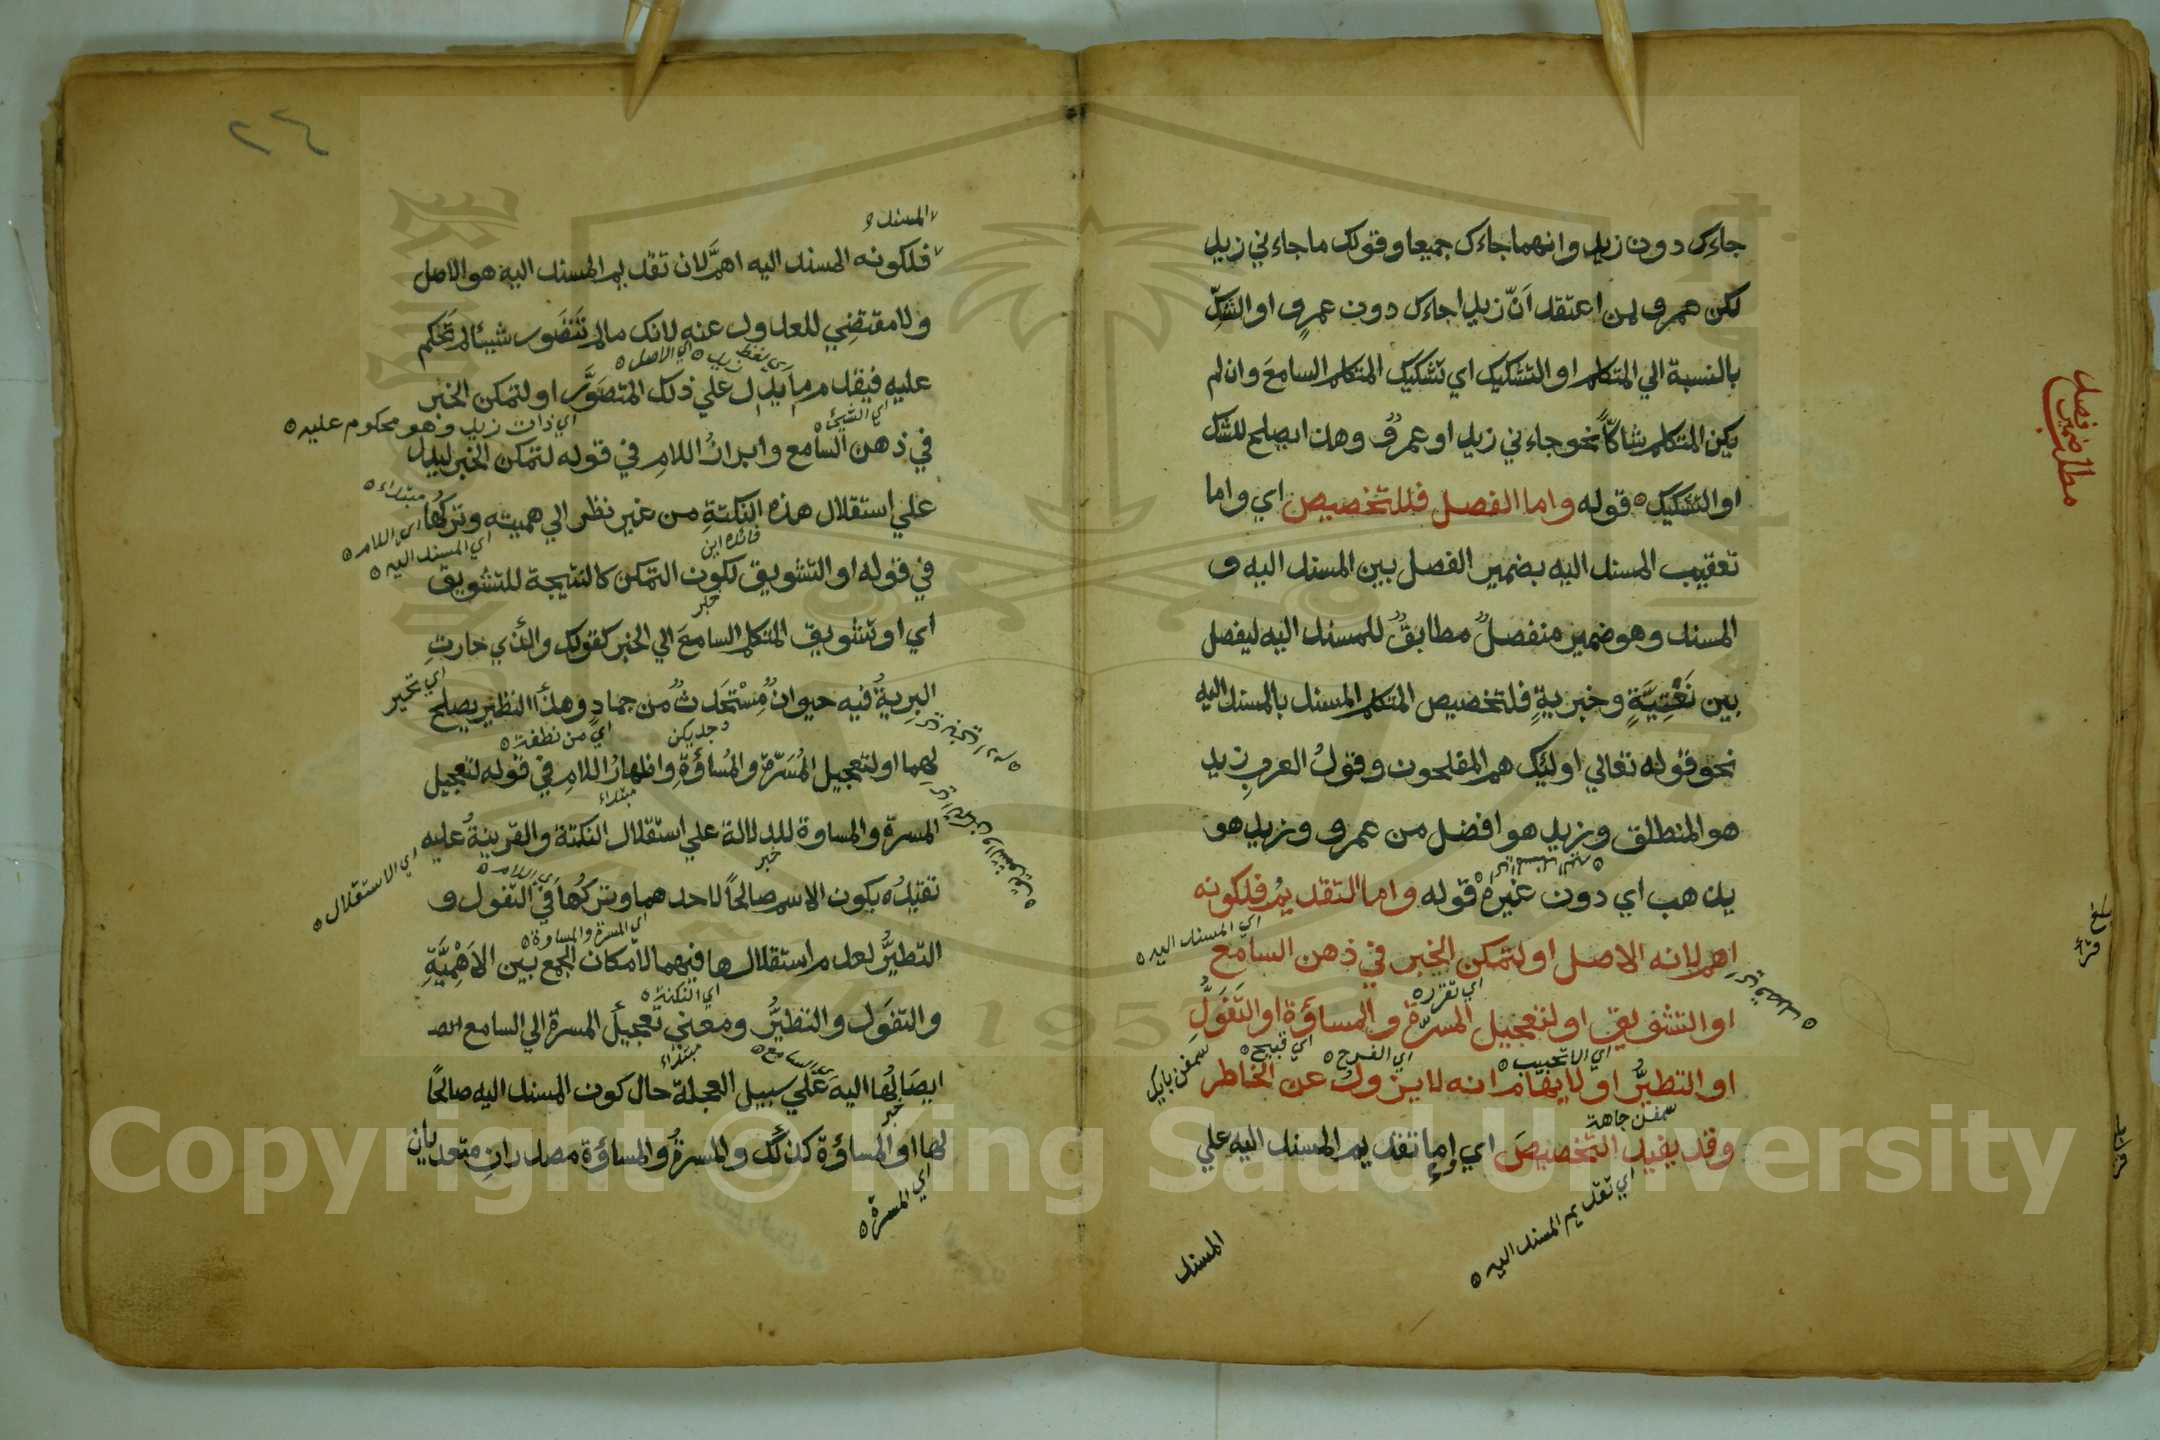 جاءك دون زيد وانهما جاءك جميعا وقولك ما جاءني زيد
لكن عمرو لمن اعتقد اَنّ زيدا جاءك دون عمرٍو او الشكِّ
بالنسبة الي المتكلم او التشكيك اي تشكيك المتكلم السامعَ وان لم
يكن المتكلم شاكّاً نحو جاءني زيد او عمرو وهذا يصلح للشك
او التشكيك قوله واما الفصل فللتخصيص اي واما
تعقيب المسند اليه بضمير الفصل بين المسند اليه و
المسند وهو ضمير منفصلٌ مطابقٌ للمسند اليه ليفصل
بين نَعْتِيَّةٍ وخبريةٍ فلتخصيص المتكلم المسند بالمسند اليه
نحو قوله تعالي اولئك هم المفلحون وقولُ العربِ زيد
هو المنطلق وزيد هو افضل من عمرو وزيد هو
يذهب اي دون غيره قوله واما التقديمُ فلكونه
اي المسند اليه
اهم لانه الاصل او لتمكن الخبر في ذهن السامع
اي تقرر
او التشويق او لتعجيل المسرّة والمساؤة او التَفَوُّلِ
اي الاتحبيب اي الفرح اي قبيح
او التطيرُّ او لايهام انه لا يزولُ عن الخاطر
وقد يفيد التخصيصَ اي واما تقديم المسند اليه علي
اي تقديم المسند اليه
المسند
مطلب ضمير فصل
بلغ
٢٤
المسند
فلكونه المسند اليه اهمَّ لان تقديم المسند اليه هو الاصل
ولا مقتضِي للعدول عنه لانك مالم تتَصَور شيئا لم تَحْكم
اي الاصل
عليه فيقدم ما يدل علي ذلك المتصَوَّر او لتمكن الخبر
اي الشيئ اي ذات زيد وهو محكوم عليه
في ذهن السامع وايرادُ اللامِ في قوله لتمكن الخبر ليدل
علي استقلال هذه النكتةِ من غير نظر الي هميته وتركُها
مبتداء
اي اللام
اي المسند اليه
في قوله او التشويق لكون التمكن كالنتيجة للتشويق
خبر
اي او تشويق المتكلم السامعَ الي الخبر كقولك والذي حارتِ
اي تحير
البرِيةُ فيه حيوانٌ مُسْتَحدَثٌ من جماد وهذا النظير يصلح
اي من نطفة
لهما او لتعجيل المُسَرّة والمُساؤةِ واظهارُ اللامِ في قوله لتعجيل
مبتداء
المسرة والمساوة للدلالة علي استقلال النكتة والقرينةُ عليه
خبر
اي الاستقلال
تقيدُه بكون الاسم صالحاً لاحدهما وتركُها في التفول و
اي المسرة والمساوة
التطيرُّ لعدم استقلالها فيهما لامكان الجمع بين الاَهْمِيَّةِ
اي النكتة
والتفوَل والتطيرُّ ومعني تعجيل المسرة الي السامع
مبتداء
ايصَالُها اليه علي سبيل العجلة حال كون المسند اليه صالحاً
خبر
لها او المساؤة كذلك والمسرةُ والمساؤة مصدرانِ متعديان
اي المسرة
Copyright © King Saud University
1957